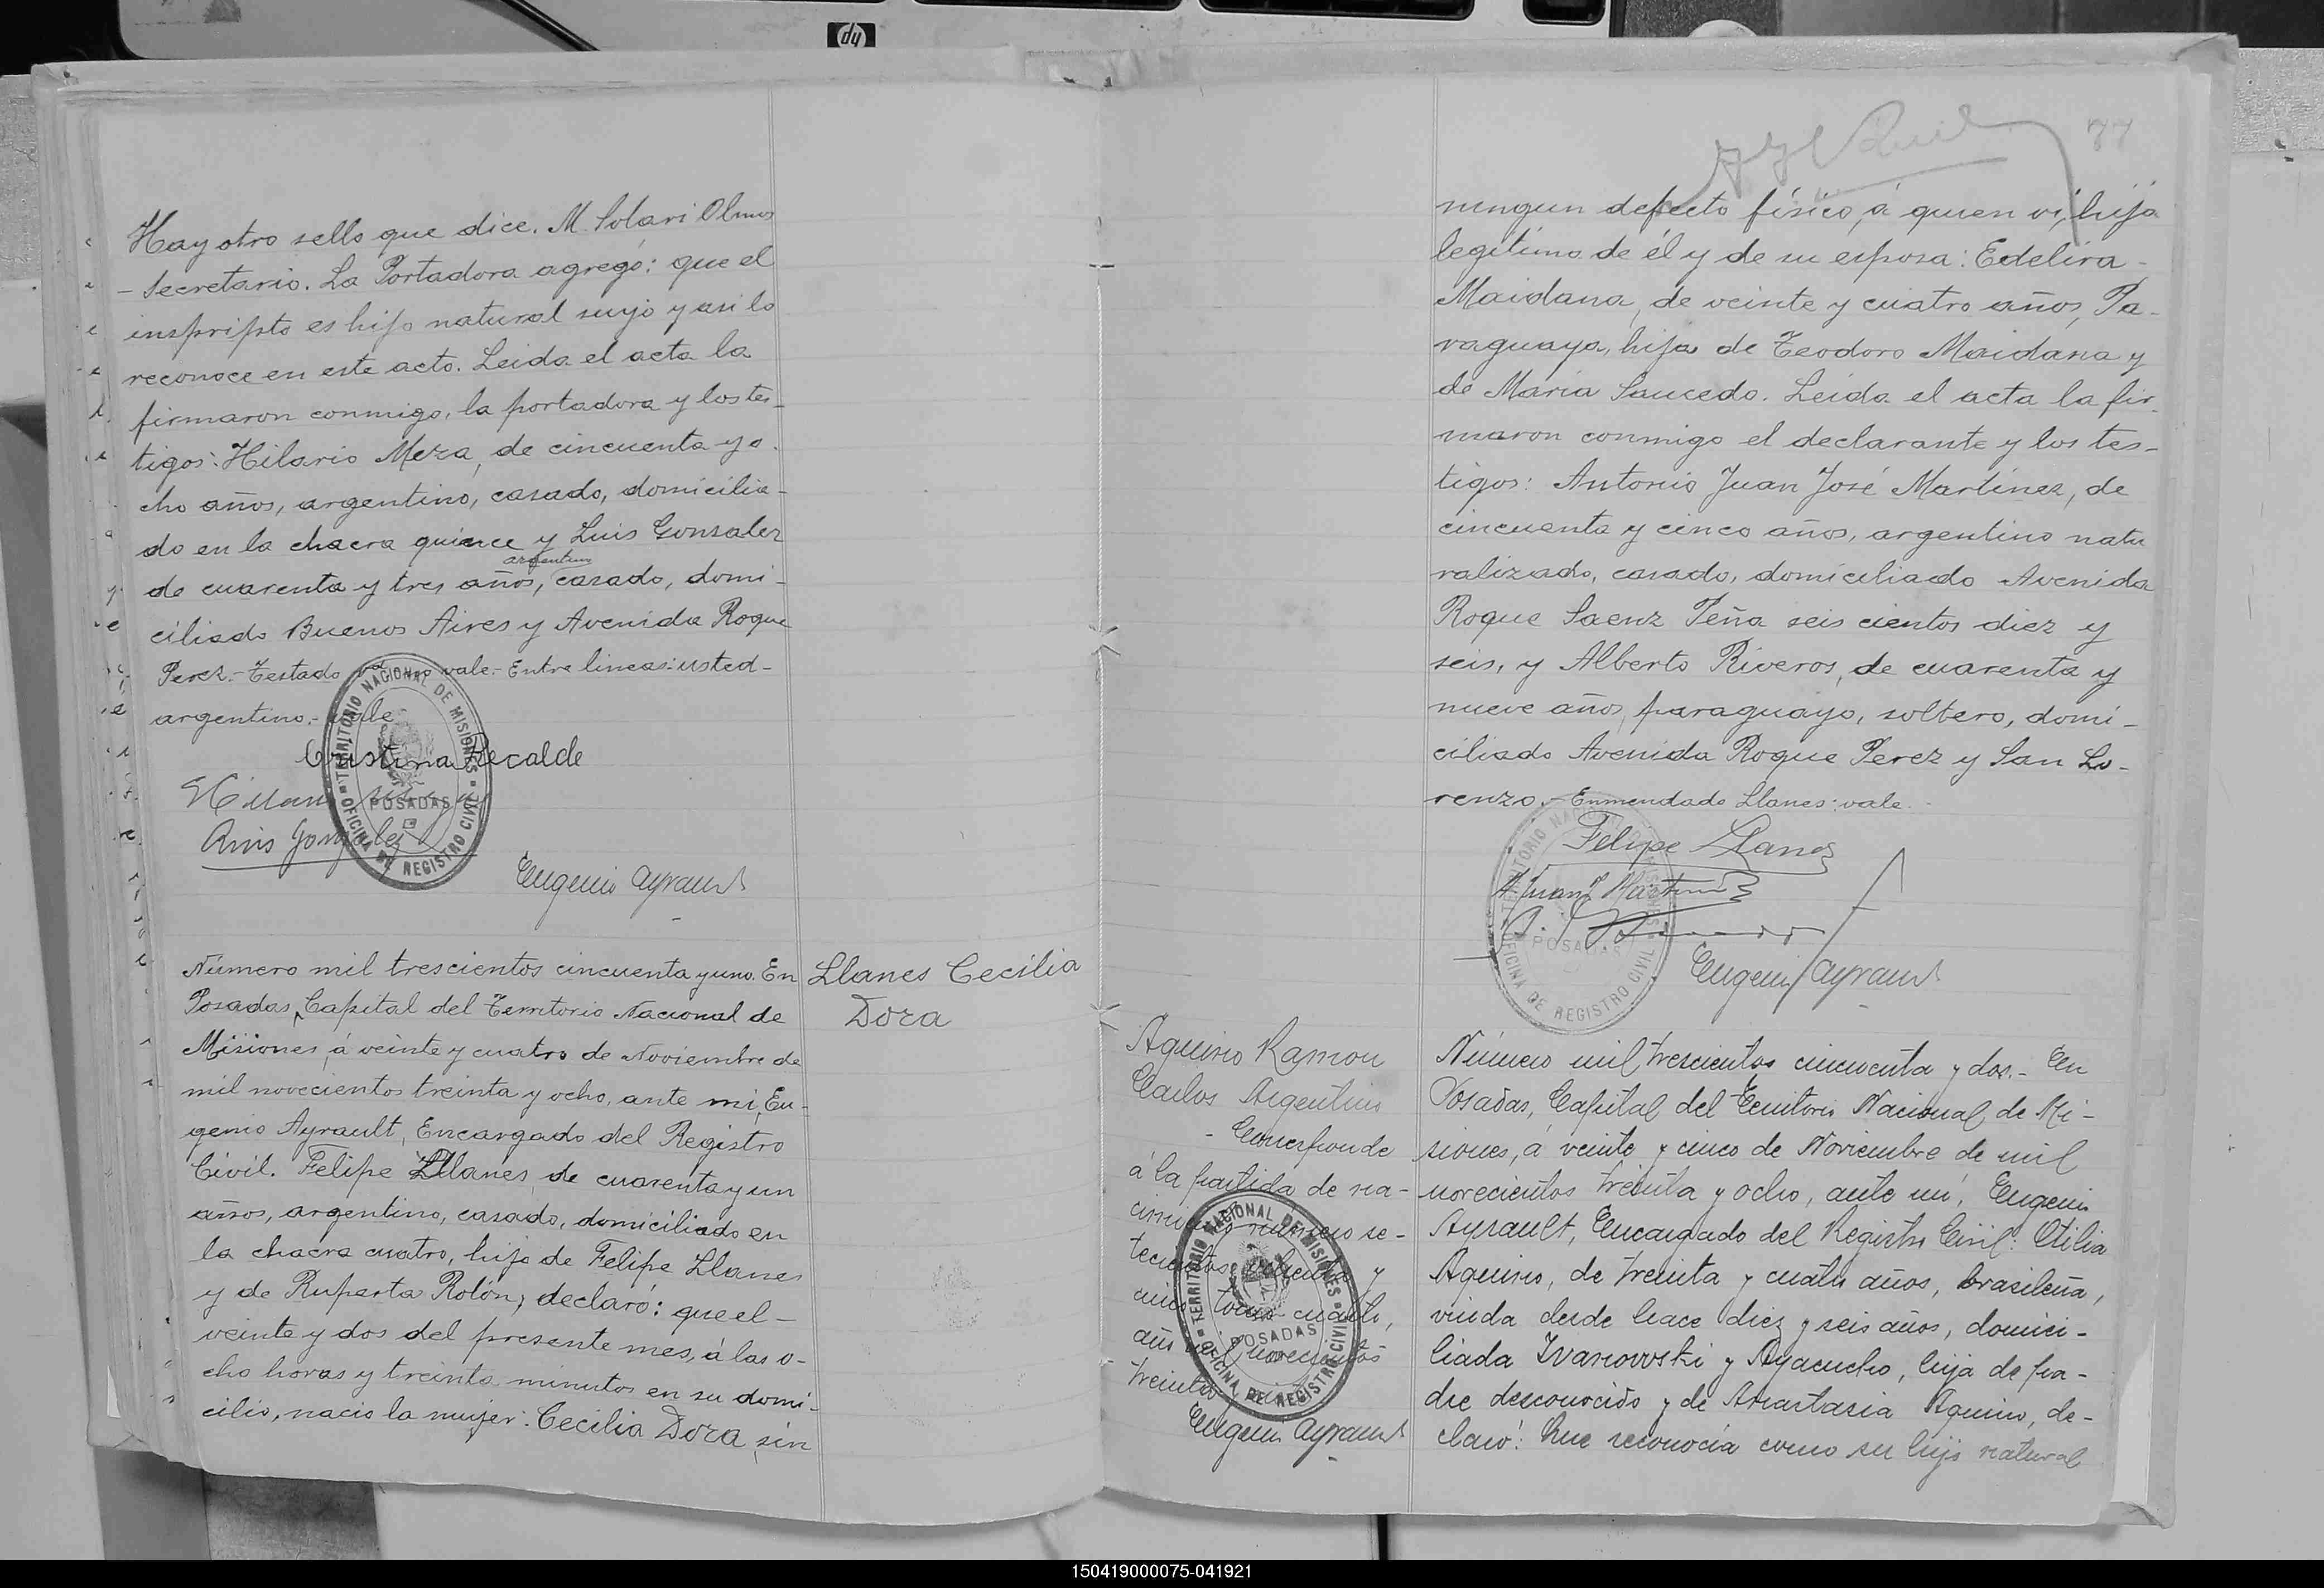 Hay otro sello que dice. M. Solari Olmos
- Secretario. La Portadora agregó: que el
inspripto es hijo natural suyo y asi lo
reconoce en este acto. Leida el acta la
firmaron conmigo, la portadora y los tes-
tigos: Hilario Meza, de cincuenta y o-
cho años, argentino, casado, domicilia-
do en la chacra quince y Luis Gonzalez
argentino
de cuarenta y tres años, casado, domi-
ciliado Buenos Aires y Avenida Roque
Perez.- Testado vale.- Entre lineas: usted-
argentino.- vale
Cristina Recalde
Luis Gonzalez
Eugenio Ayrault
TERRITORIO NACIONAL DE MISIONES
POSADAS
OFICINA DE REGISTRO CIVIL
Número mil trescientos cincuenta y uno. En
Posadas, Capital del Territorio Nacional de
Misiones, á veinte y cuatro de Noviembre de
mil novecientos treinta y ocho, ante mi, Eu-
genio Ayrault, Encargado del Registro
Civil. Felipe Llanes, de cuarenta y un
años, argentino, casado, domiciliado en
la chacra cuatro, hijo de Felipe Llanes
y de Ruperta Rolón, declaró: que el-
veinte y dos del presente mes, á las o-
cho horas y treinta minutos en su domi-
cilio, nacio la mujer: Cecilia Dora, sin
Llanes Cecilia
Dora
77
ningun defecto físico, á quien ví, hija
legítima de él y de su esposa: Edelira-
Maidana, de veinte y cuatro años, Pa-
raguaya, hija de Teodoro Maidana y
de María Saucedo. Leída el acta la fir-
maron conmigo el declarante y los tes-
tigos: Antonio Juan José Martinez, de
cincuenta y cinco años, argentino natu
ralizado, casado, domiciliado Avenida
Roque Saenz Peña seis cientos diez y
seis, y Alberto Riveros, de cuarenta y
nueve años, paraguayo, soltero, domi-
ciliado Avenida Roque Perez y San Lo-
renzo.- Enmendado Llanes: vale.
Felipe Llanes
A. Juan J. Martinez
Eugenio Ayrault
TERRITORIO NACIONAL DE MISIONES
POSADAS
OFICINA DE REGISTRO CIVIL
Aquino Ramon
Carlos Argentino
- Corresponde
á la partida de na-
cimiento número se-
tecientos ochenta y
uno, tomo cuarto,
año mil novecientos
treinta
Eugenio Ayrault
TERRITORIO NACIONAL DE MISIONES
POSADAS
OFICINA DE REGISTRO CIVIL
Número mil trescientos cincuenta y dos.- En
Posadas, Capital del Territorio Nacional de Mi-
siones, á veinte y cinco de Noviembre de mil
novecientos treinta y ocho, ante mí, Eugenio
Ayrault, Encargado del Registro Civil: Otilia
Aquino, de treinta y cuatro años, brasileña,
viuda desde hace diez y seis años, domici-
liada Ivanovski y Ayacucho, hija de pa-
dre desconocido y de Anastasia Aquino, de-
claró: Que reconocía como su hijo natural
150419000075-041921